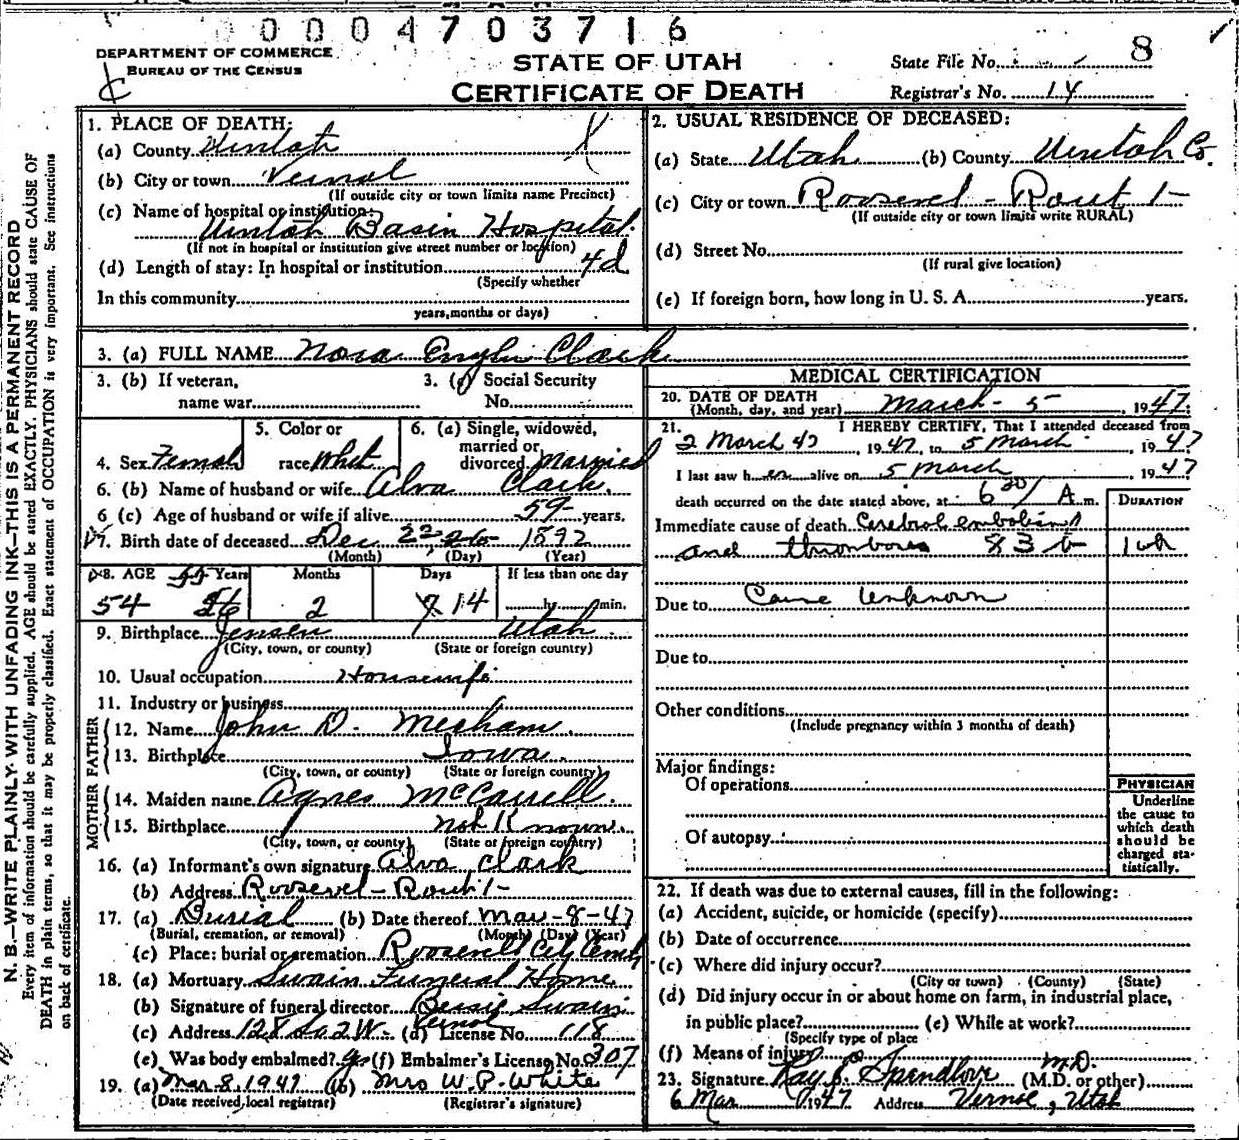 0004703716
DEPARTMENT OF COMMERCE
BUREAU OF THE CENSUS
STATE OF UTAH
CERTIFICATE OF DEATH
State File No. 8
Registrar's No. 14
N. B.—WRITE PLAINLY WITH UNFADING INK—THIS IS A PERMANENT RECORD
Every item of information should be carefully supplied. AGE should be stated EXACTLY. PHYSICIANS should state CAUSE OF
DEATH in plain terms, so that it may be properly classified. Exact statement of OCCUPATION is very important. See instructions
on back of certificate.
1. PLACE OF DEATH:
(a) County Uintah
(b) City or town Vernal
(If outside city or town limits name Precinct)
(c) Name of hospital or institution:
Uintah Basin Hospital
(If not in hospital or institution give street number or location)
(d) Length of stay: In hospital or institution 4d
(Specify whether
In this community
years, months or days)
2. USUAL RESIDENCE OF DECEASED:
(a) State Utah (b) County Uintah Co.
(c) City or town Roosevel - Rout 1-
(If outside city or town limits write RURAL)
(d) Street No.
(If rural give location)
(e) If foreign born, how long in U. S. A. years.
3. (a) FULL NAME Nora Clark
3. (b) If veteran,
name war
3. (c) Social Security
No.
4. Sex Female
5. Color or
race Whit
6. (a) Single, widowed,
married or
divorced Married
6. (b) Name of husband or wife Alva Clark.
6 (c) Age of husband or wife if alive 59 years.
7. Birth date of deceased Dec 22 1892
(Month) (Day) (Year)
8. AGE 55 Years Months Days If less than one day
54 56 2 7 14 hr. min.
9. Birthplace Jensen Utah.
(City, town, or county) (State or foreign country)
10. Usual occupation Housewife
11. Industry or business
FATHER
12. Name John D. Mecham.
13. Birthplace Iowa.
(City, town, or county) (State or foreign country)
MOTHER
14. Maiden name Agnes McCarrell.
15. Birthplace Not Known.
(City, town, or county) (State or foreign country)
16. (a) Informant's own signature Alva Clark
(b) Address Roosevel - Rout 1-
17. (a) Burial (b) Date thereof Mar - 8 - 47
(Burial, cremation, or removal) (Month) (Day) (Year)
(c) Place: burial or cremation Roosevelt City Cemty
18. (a) Mortuary Swain Funeral Home
(b) Signature of funeral director Bessie Swain
(c) Address 128 So 2 W - Vernal (d) License No. 118
(e) Was body embalmed? yes (f) Embalmer's License No. 307
19. (a) Mar 8. 1947 (b) Mrs W. P. White
(Date received local registrar) (Registrar's signature)
MEDICAL CERTIFICATION
20. DATE OF DEATH
(Month, day, and year) March - 5 , 1947.
21. I HEREBY CERTIFY, That I attended deceased from
2 March 47 , 1947, to 5 March , 1947
I last saw h er alive on 5 March 1947
death occurred on the date stated above, at 6 30 A m.
DURATION
Immediate cause of death Cerebral embolism
and thromboses 83 b
Due to Cause Unknown
Due to
Other conditions
(Include pregnancy within 3 months of death)
Major findings:
Of operations
Of autopsy
PHYSICIAN
Underline
the cause to
which death
should be
charged sta-
tistically.
22. If death was due to external causes, fill in the following:
(a) Accident, suicide, or homicide (specify)
(b) Date of occurrence
(c) Where did injury occur?
(City or town) (County) (State)
(d) Did injury occur in or about home on farm, in industrial place,
in public place? (e) While at work?
(Specify type of place
(f) Means of injury
23. Signature Ray E Spendlove M.D. (M.D. or other)
6 Mar 1947 Address Vernal, Utah